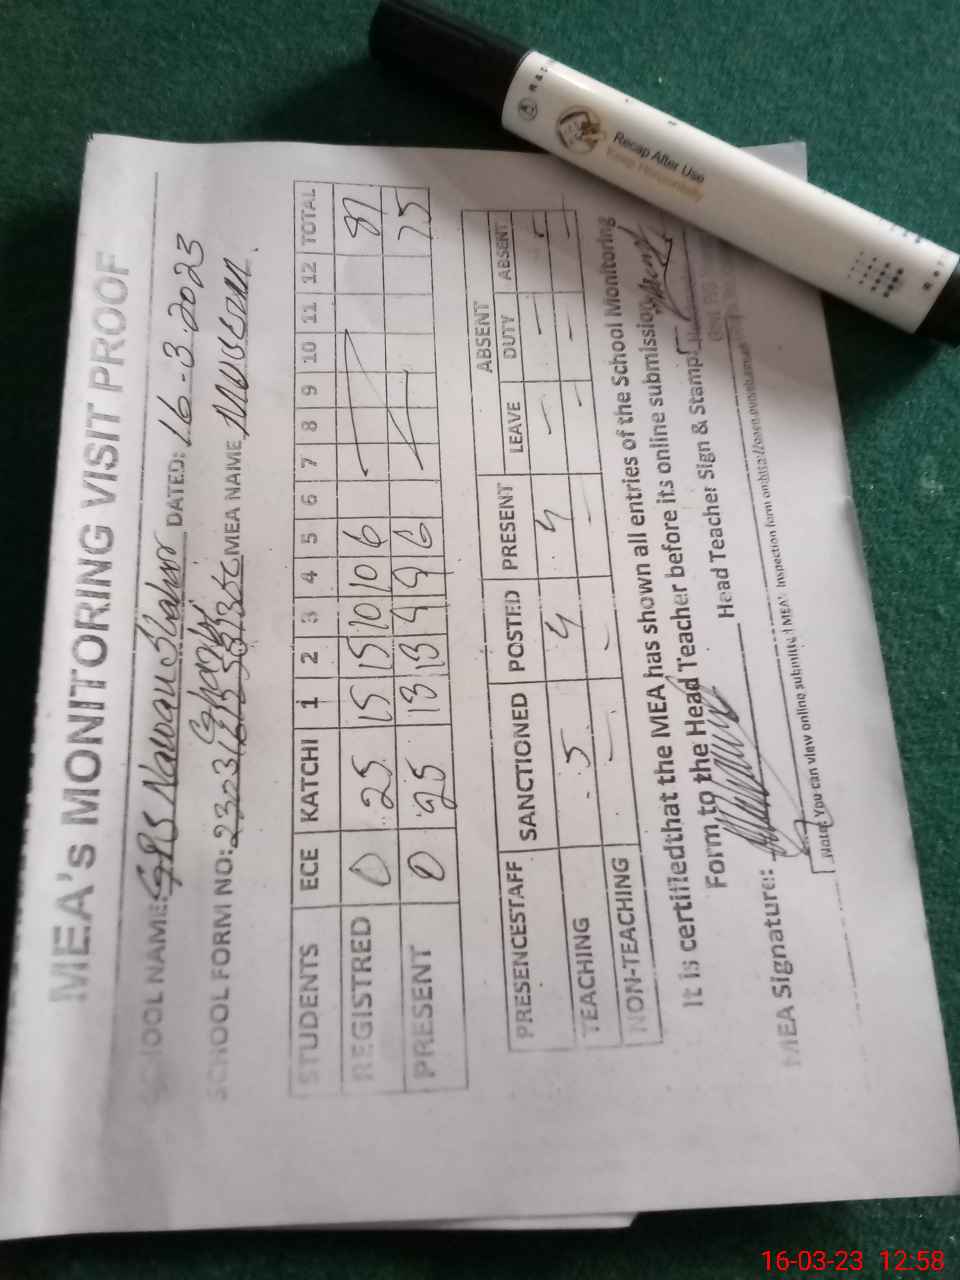 MEA's MONITORING VISIT PROOF
SCHOOL NAME: GPS Nawan Shahr DATED: 16-3-2023
SCHOOL FORM NO: MEA NAME
STUDENTS ECE KATCHI 1 2 3 4 5 6 7 8 9 10 11 12 TOTAL
REGISTRED 0 25 15 15 10 10 6 81
PRESENT 0 25 13 13 9 9 6 75
ABSENT
PRESENCESTAFF SANCTIONED POSTED PRESENT LEAVE DUTY ABSENT
TEACHING 5 4 4 - - -
NON-TEACHING - - - - - -
It is certifiedthat the MEA has shown all entries of the School Monitoring
Form to the Head Teacher before its online submission
MEA Signature: Head Teacher Sign & Stamp:
Note: You can view online submitted MEA's Inspection form on:
Recap After Use
Keep Horizontally
16-03-23 12:58